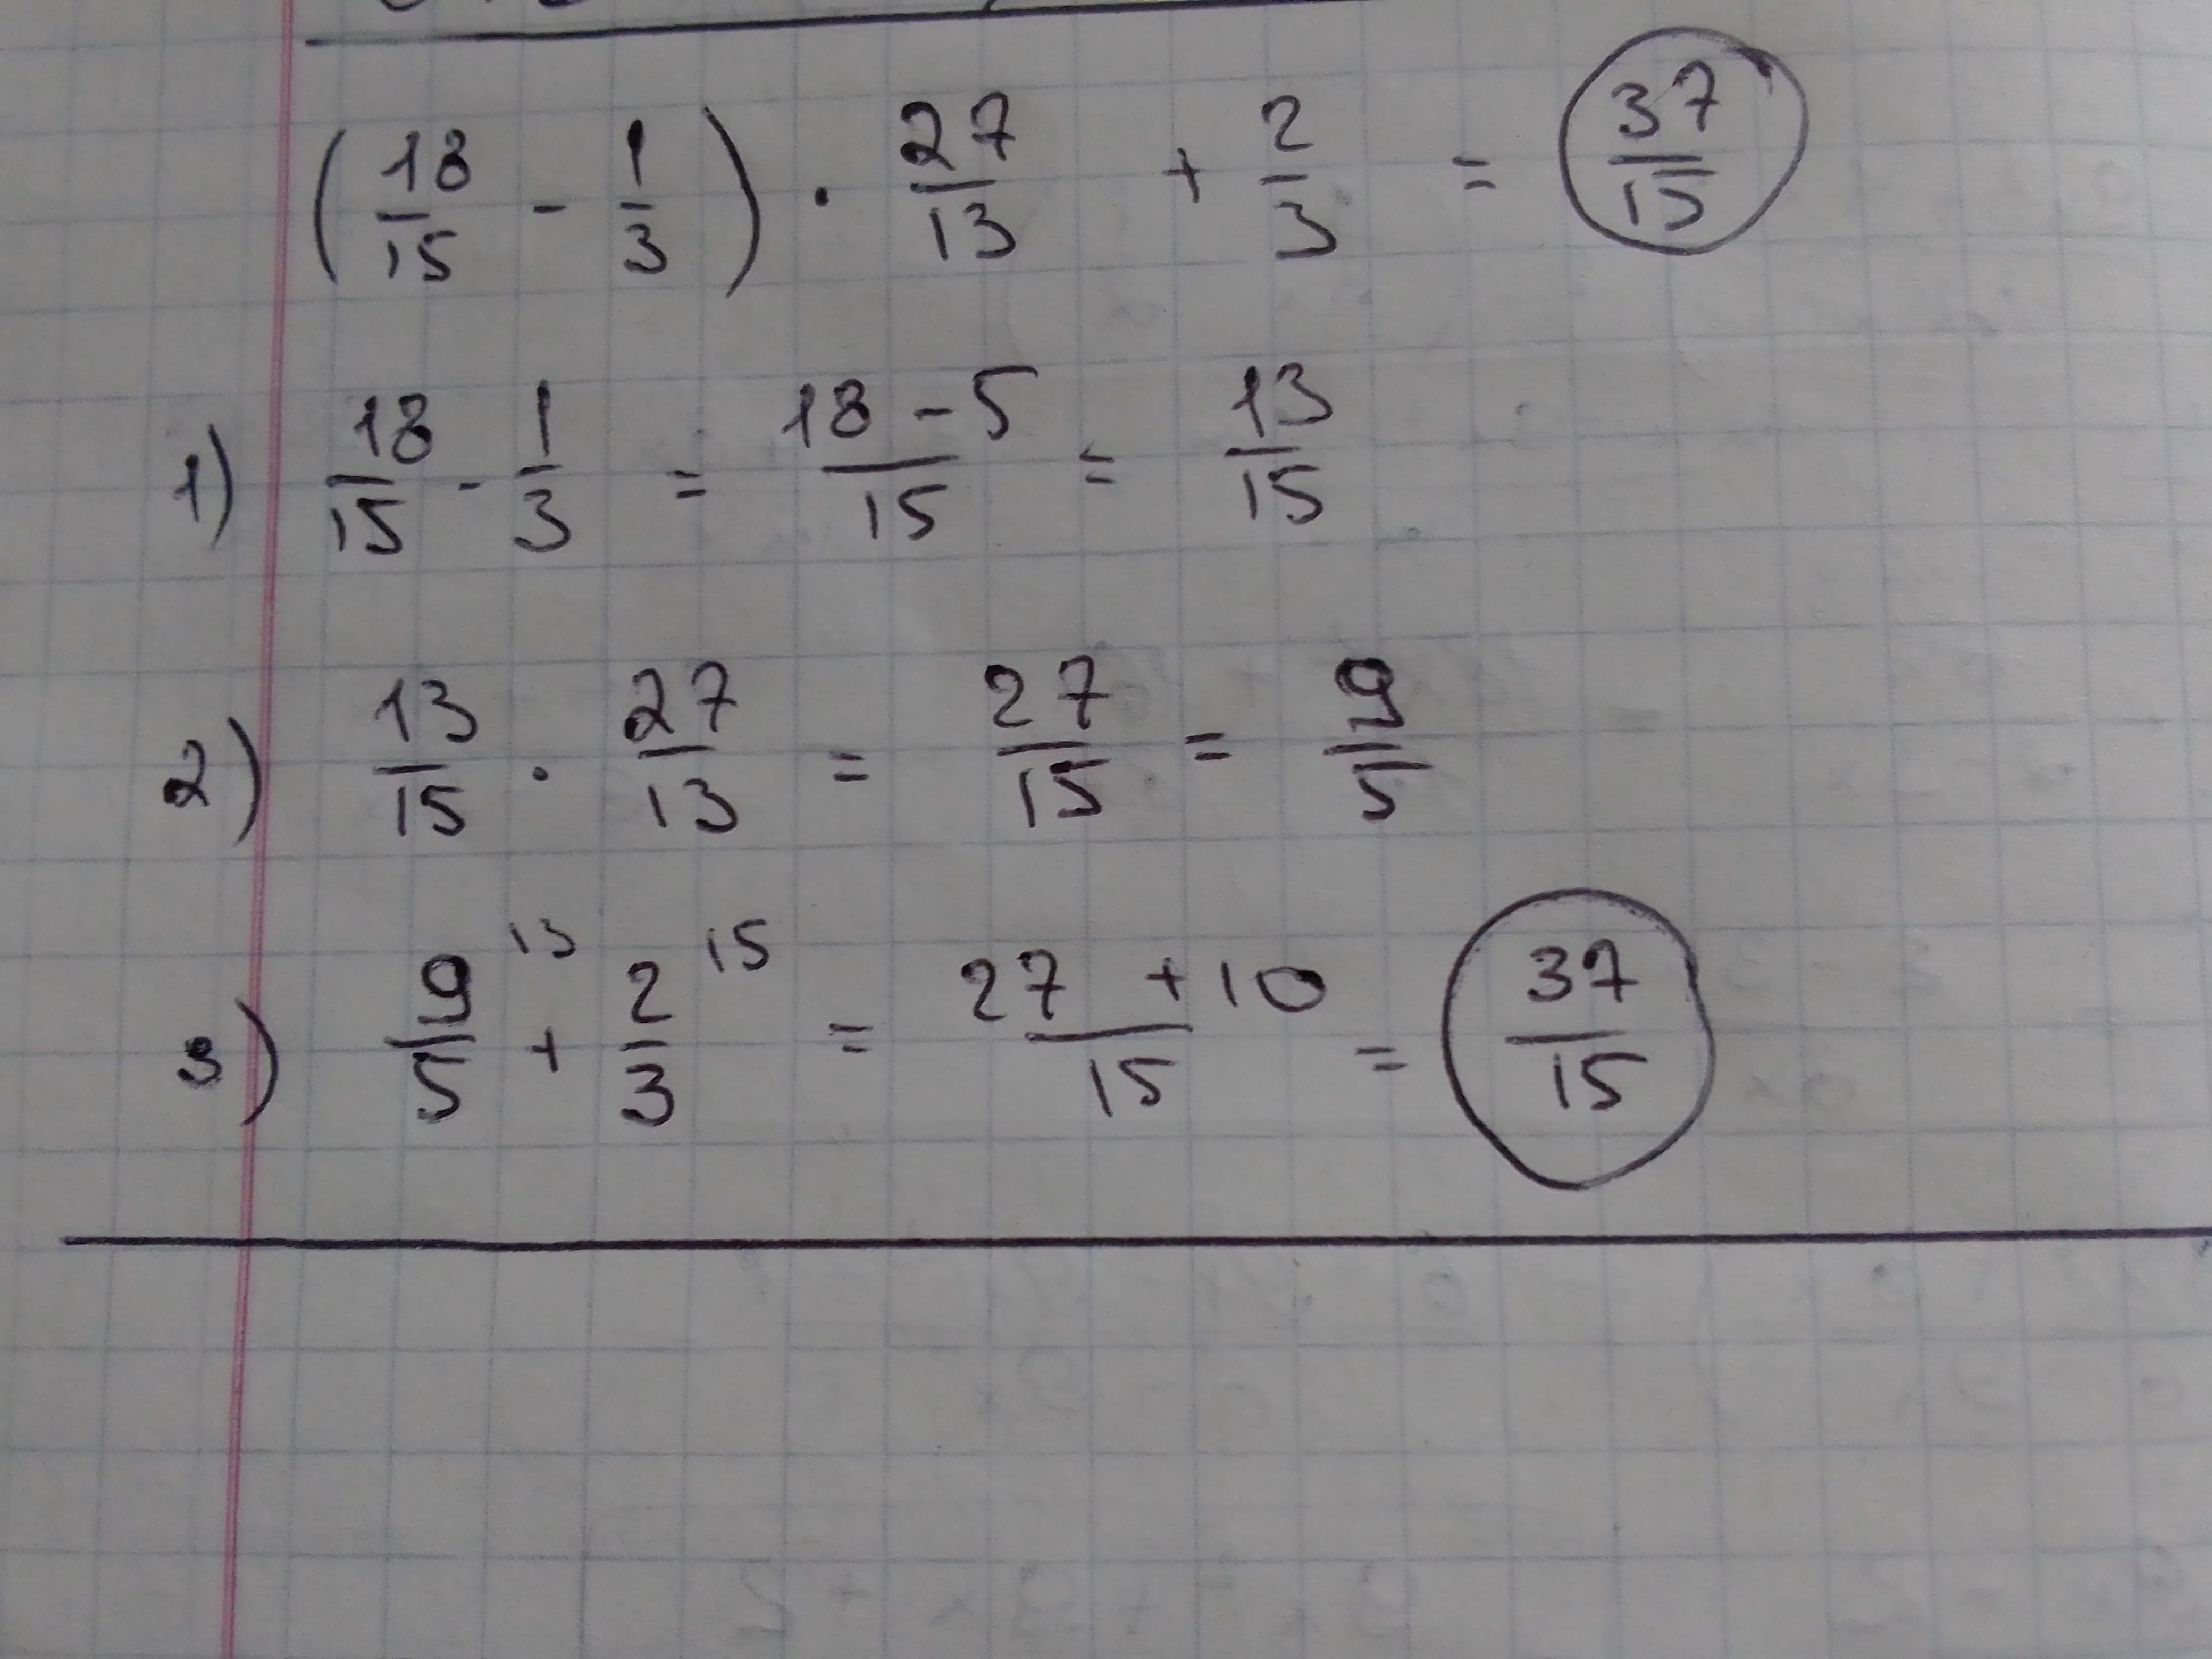 (18/15 - 1/3) · 27/13 + 2/3 = 37/15
1) 18/15 - 1/3 = 18 - 5/15 = 13/15
2) 13/15 · 27/13 = 27/15 = 9/5
3) 9/5 13 + 2/3 15 = 27 + 10/15 = 37/15